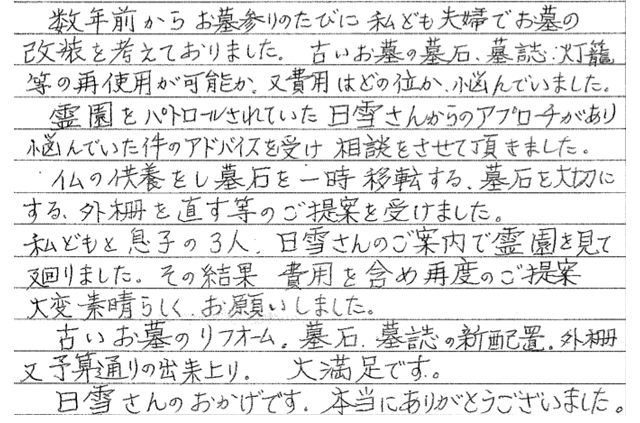 数年前からお墓参りのたびに私ども夫婦でお墓の
改装を考えておりました。古いお墓の墓石、墓誌、灯籠
等の再使用が可能か、又費用はどの位か、悩んでいました。
霊園をパトロールされていた日雪さんからのアプローチがあり
悩んでいた件のアドバイスを受け相談をさせて頂きました。
仏の供養をし墓石を一時移転する、墓石を大切に
する、外柵を直す等のご提案を受けました。
私どもと息子の3人、日雪さんのご案内で霊園を見て
廻りました。その結果 費用を含め再度のご提案
大変素晴らしく、お願いしました。
古いお墓のリフォーム。墓石、墓誌の新配置、外柵
又予算通りの出来上り。大満足です。
日雪さんのおかげです。本当にありがとうございました。